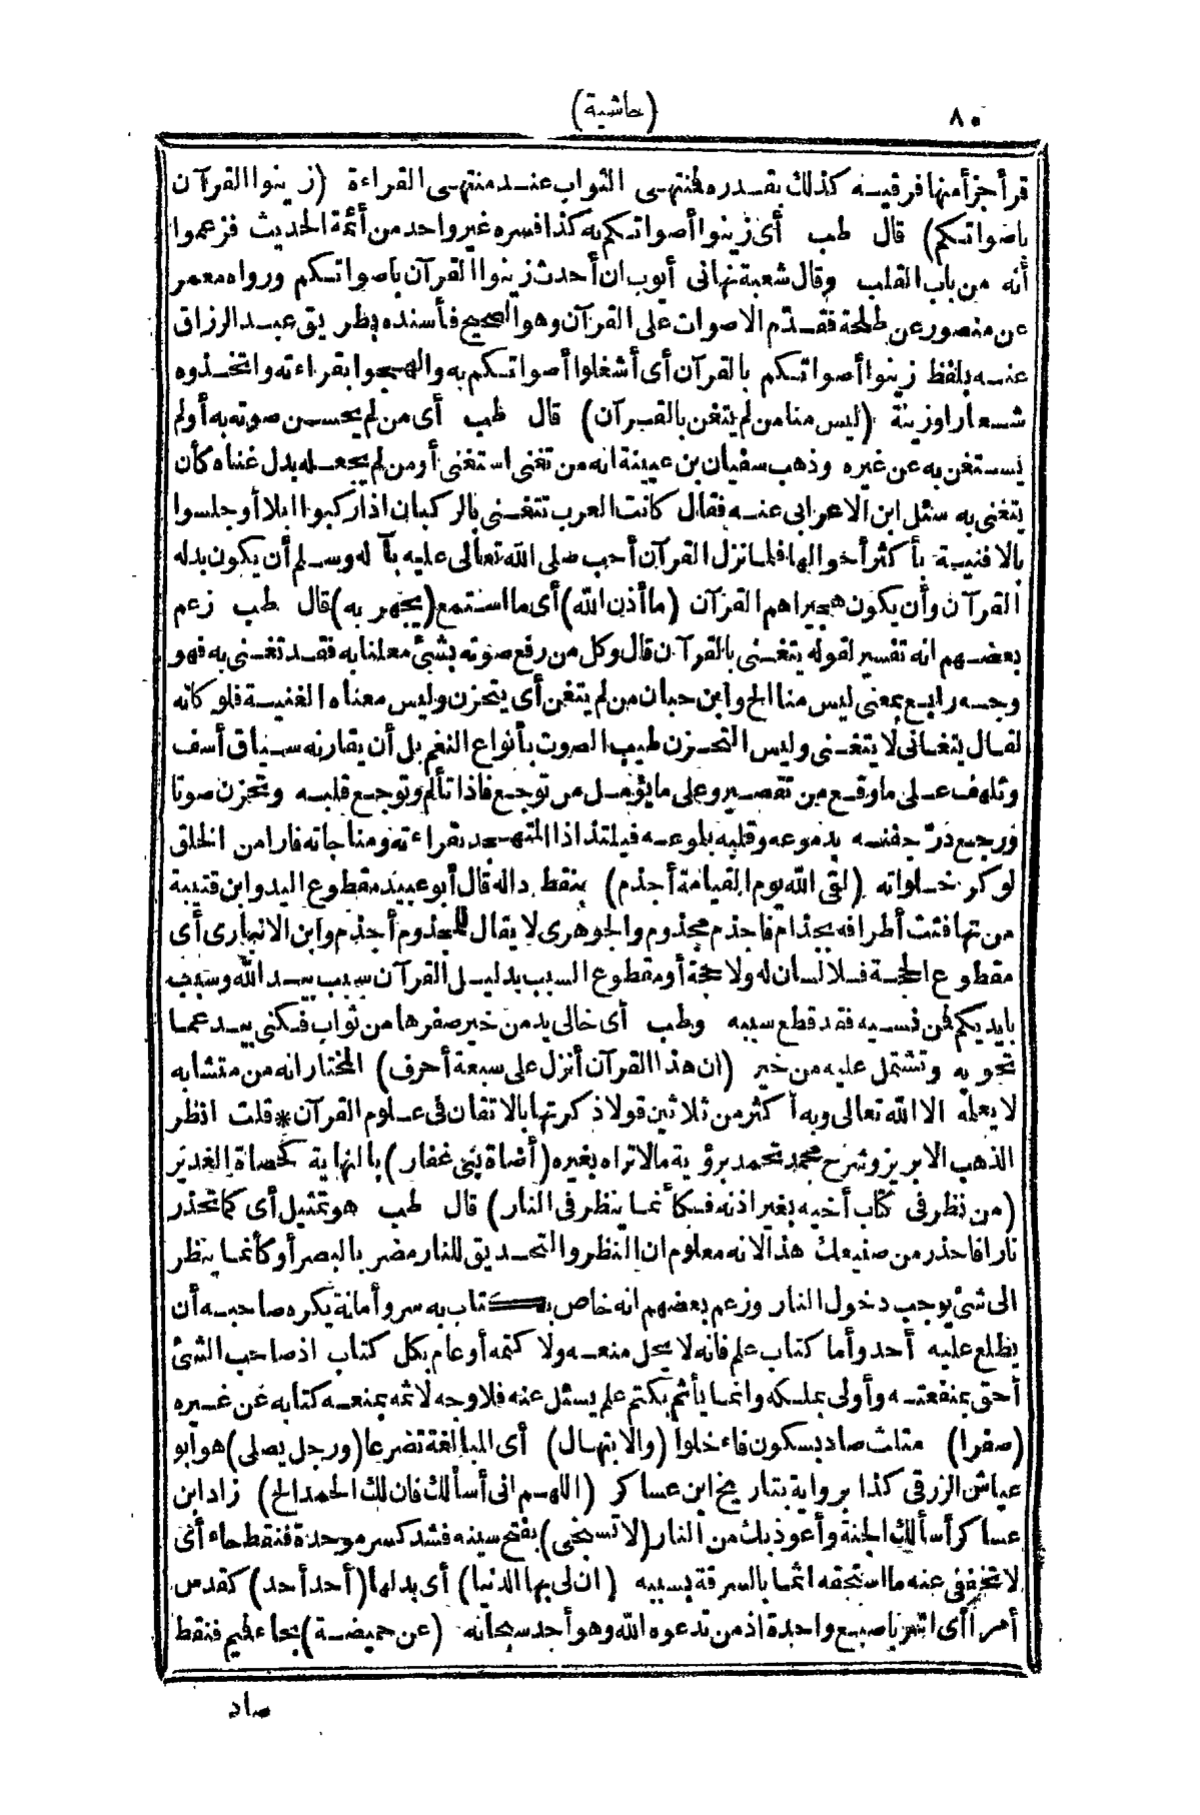 ٨٠
(حاشية)
قرأ جزأ منها فرقيه كذلك بقدره فمنتهى الثواب عند منتهى القراءة (زينوا القرآن
بأصواتكم) قال طب أى زينوا أصواتكم به كذا فسره غير واحد من أئمة الحديث فزعموا
أنه من باب القلب وقال شعبة نهانى أيوب ان أحدث زينوا القرآن بأصواتكم ورواه معمر
عن منصور عن طلحة فقدم الاصوات على القرآن وهو الصحيح فأسنده بطريق عبد الرزاق
عنه بلفظ زينوا أصواتكم بالقرآن أى أشغلوا أصواتكم به والهجوا بقراءته واتخذوه
شعارا وزينة (ليس منا من لم يتغن بالقرآن) قال طب أى من لم يحسن صوته به أولم
يستغن به عن غيره وذهب سفيان بن عيينة انه من تغنى استغنى أو من لم يجعله بدل غناه كأن
يتغنى به سئل ابن الاعرابى عنه فقال كانت العرب تتغنى بالركبان اذا ركبوا ابلا أو جلسوا
بالافنية بأكثر أحوالها فلما نزل القرآن أحب صلى الله تعالى عليه بآله وسلم أن يكون بدله
القرآن وأن يكون هجيراهم القرآن (ما أذن الله) أى ما استمع (يجهر به) قال طب زعم
بعضهم انه تفسير لقوله يتغنى بالقرآن قال وكل من رفع صوته بشئ معلنا به فقد تغنى به فهو
وجه رابع بمعنى ليس منا الخ وابن حبان من لم يتغن أى يتحزن وليس معناه الغنية فلو كانه
لقال يتغانى لا يتغنى وليس التحزن طيب الصوت بأنواع النغم بل أن يقارنه سياق أسف
وتلهف على ما وقع من تقصير وعلى ما يؤمل من توجع فاذا تألم وتوجع قلبه وتحزن صوتا
ورجع در جفنه بدموعه وقلبه بلوعه فيلتذ اذا المتهجد بقراءته ومناجاته فارا من الخلق
لوكر خلواته (لقى الله يوم القيامة أجذم) بنقط داله قال أبو عبيد مقطوع اليد وابن قتيبة
من تهافتت أطرافه بجذام فأجذم مجذوم والجوهرى لا يقال للمجذوم أجذم وابن الانبارى أى
مقطوع الحجة فلا لسان له ولا حجة أو مقطوع السبب بدليل القرآن سبب بيد الله وسبب
بأيديكم فمن نسيه فقد قطع سببه وطب أى خالى يد من خير صفرها من ثواب فكنى بيد عما
تحويه وتشتمل عليه من خير (ان هذا القرآن أنزل على سبعة أحرف) المختار انه من متشابه
لا يعلمه الا الله تعالى وبه أكثر من ثلاثين قولا ذكرتها بالاتقان فى علوم القرآن * قلت انظر
الذهب الابريز وشرح محمد تحمد برؤية مالا تراه بغيره (أضاة بنى غفار) بالنهاية كحصاة الغدير
(من نظر فى كتاب أخيه بغير اذنه فكأنما ينظر فى النار) قال طب هو تمثيل أى كما تحذر
نارا فاحذر من صنيعك هذا لانه معلوم ان النظر والتحديق للنار مضر بالبصر أو كأنما ينظر
الى شئ يوجب دخول النار وزعم بعضهم انه خاص بكتاب به سر وأمانة يكره صاحبه أن
يطلع عليه أحد وأما كتاب علم فانه لا يحل منعه ولا كتمه أو عام بكل كتاب اذ صاحب الشئ
أحق بمنفعته وأولى بملكه وانما يأثم بكتم علم يسئل عنه فلا وجه لاثمه بمنعه كتابه عن غيره
(صفرا) مثلث صاد بسكون فاء خلوا (والابتهال) أى المبالغة تضرعا (ورجل يصلى) هو أبو
عياش الزرقى كذا برواية بتاريخ ابن عساكر (اللهم انى أسألك فان لك الحمد الخ) زاد ابن
عساكر أسألك الجنة وأعوذ بك من النار (لا تسبخى) بفتح سينه فشد كسر موحدة فنقط حاء أى
لا تخففى عنه ما استحقه اثما بالسرقة بسببه (ان لى بها الدنيا) أى بدلها (أحد أحد) كقدس
أمرا أى اشر باصبع واحدة اذ من تدعوه الله وهو أحد سبحانه (عن حميضة) بحاء فميم فنقط
صاد